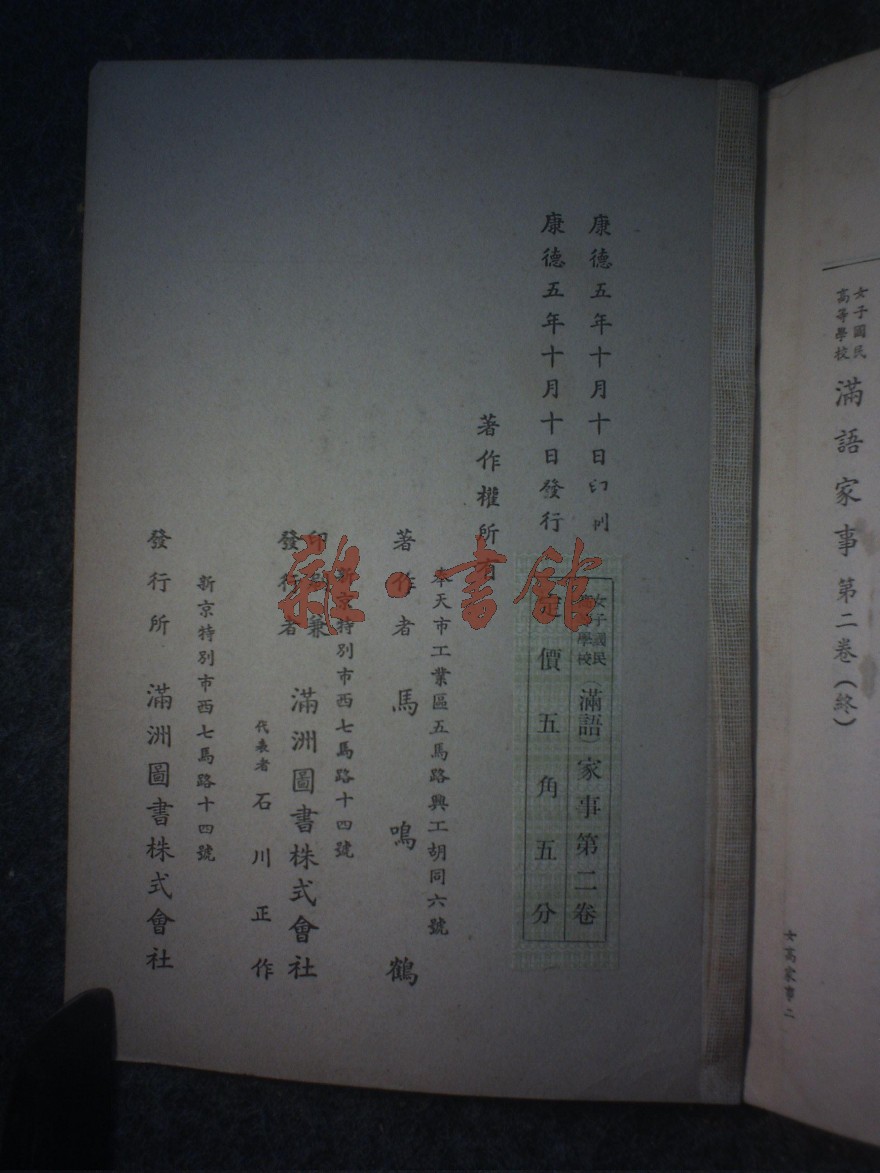 女子國民
高等學校
滿語家事第二卷(終)
女高家事二
康德五年十月十日印刷
康德五年十月十日發行
女子國民
學校
(滿語)家事第二卷
定價五角五分
著作權所有
奉天市工業區五馬路興工胡同六號
著作者 馬鳴鶴
新京特別市西七馬路十四號
印刷兼
發行者
滿洲圖書株式會社
代表者 石川正作
新京特別市西七馬路十四號
發行所 滿洲圖書株式會社
雜·書館